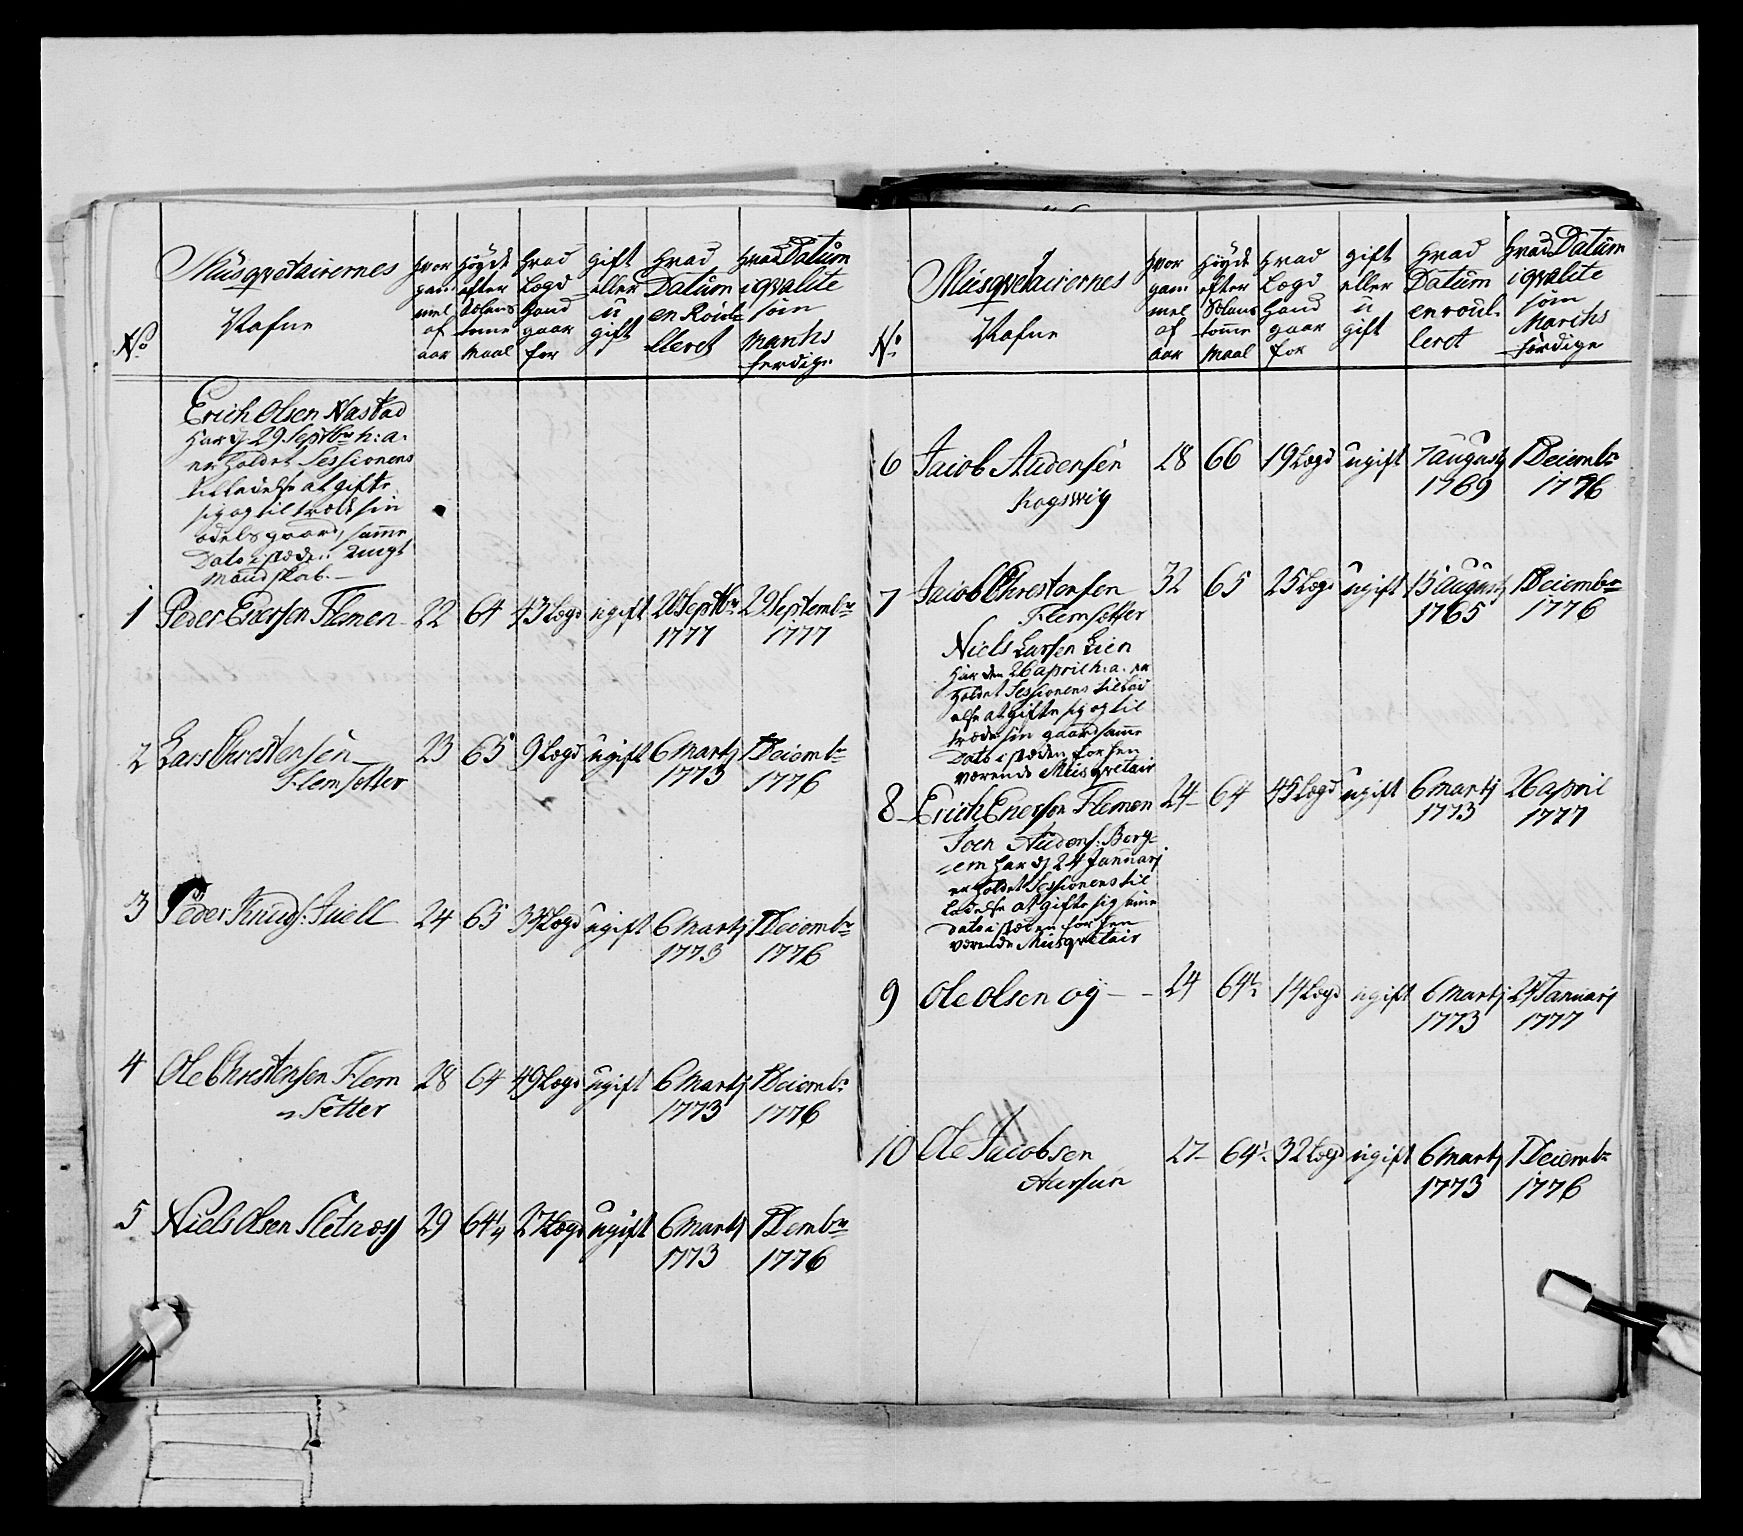 No
Musqvetairernes Nafne
hvor gam mel af aar
Høyde efter Solans tome Maal
hvad Lægd Hand gaar for
gift eller u gift
hvad Datum en Roul= lleret
hvad Datum i qvalite som Marchs ferdige
Erich Olsen Nastad
har d 29 Septbr h: a:
erholdet Sessionens
tilladelse at gifte
sig og til træde sin
odels gaard, samme
Dato i stæden
Mandskab. —
1 Peder Enersen Flemen 22 64 43 Lægd ugift 20 Septbr 1777 29 Septembr 1777
2 Lars Chrestensen Flemsetter 23 65 9 Lægd ugift 6 Martj 1773 1 Decembr 1776
3 Peder Knuds: 24 65 34 Lægd ugift 6 Martj 1773 1 Decembr 1776
4 Ole Chrestensen Flem = Setter 28 64 49 Lægd ugift 6 Martj 1773 1 Decembr 1776
5 Niels Olsen Sletnæss 29 64¼ 27 Lægd ugift 6 Martj 1773 1 Dembr 1776
No
Musqvetairernes Nafne
hvor gam mel af aar
Høyde efter Solans tomme Maal
hvad Lægd Hand gaar for
gift eller u gift
hvad Datum enroul: leret
hvad Datum i qvalite som Marchs færdige
6 Jacob Andensen Kogswig 28 66 19 Lægd ugift 7 augustj 1769 1 Decembr 1776
7 Jacob Chrestensen Flemsetter 32 65 25 Lægd ugift 15 augustj 1765 1 Decembr 1776
Niels Larsen Lien
har den 26 april h: a: er
holdet Sessionens tillad
else at gifte sig og til
træde sin gaard samme
Dato i stæden for hen
værende Musqvetair
8 Erich Enersen Flemen 24 64 45 Lægd ugift 6 martj 1773 26 april 1777
Joen Audens: Borg=
=em har d 24 Januarj
erholdet Sessionens til
ladelse at gifte sig
Dato i stæden for hen
værende Musqvetair
9 Ole Olsen Øy 24 64½ 14 Lægd ugift 6 Martj 1773 24 Januarj 1777
10 Ole Jacobsen 27 64½ 32 Lægd ugift 6 Martj 1773 1 Decembr 1776